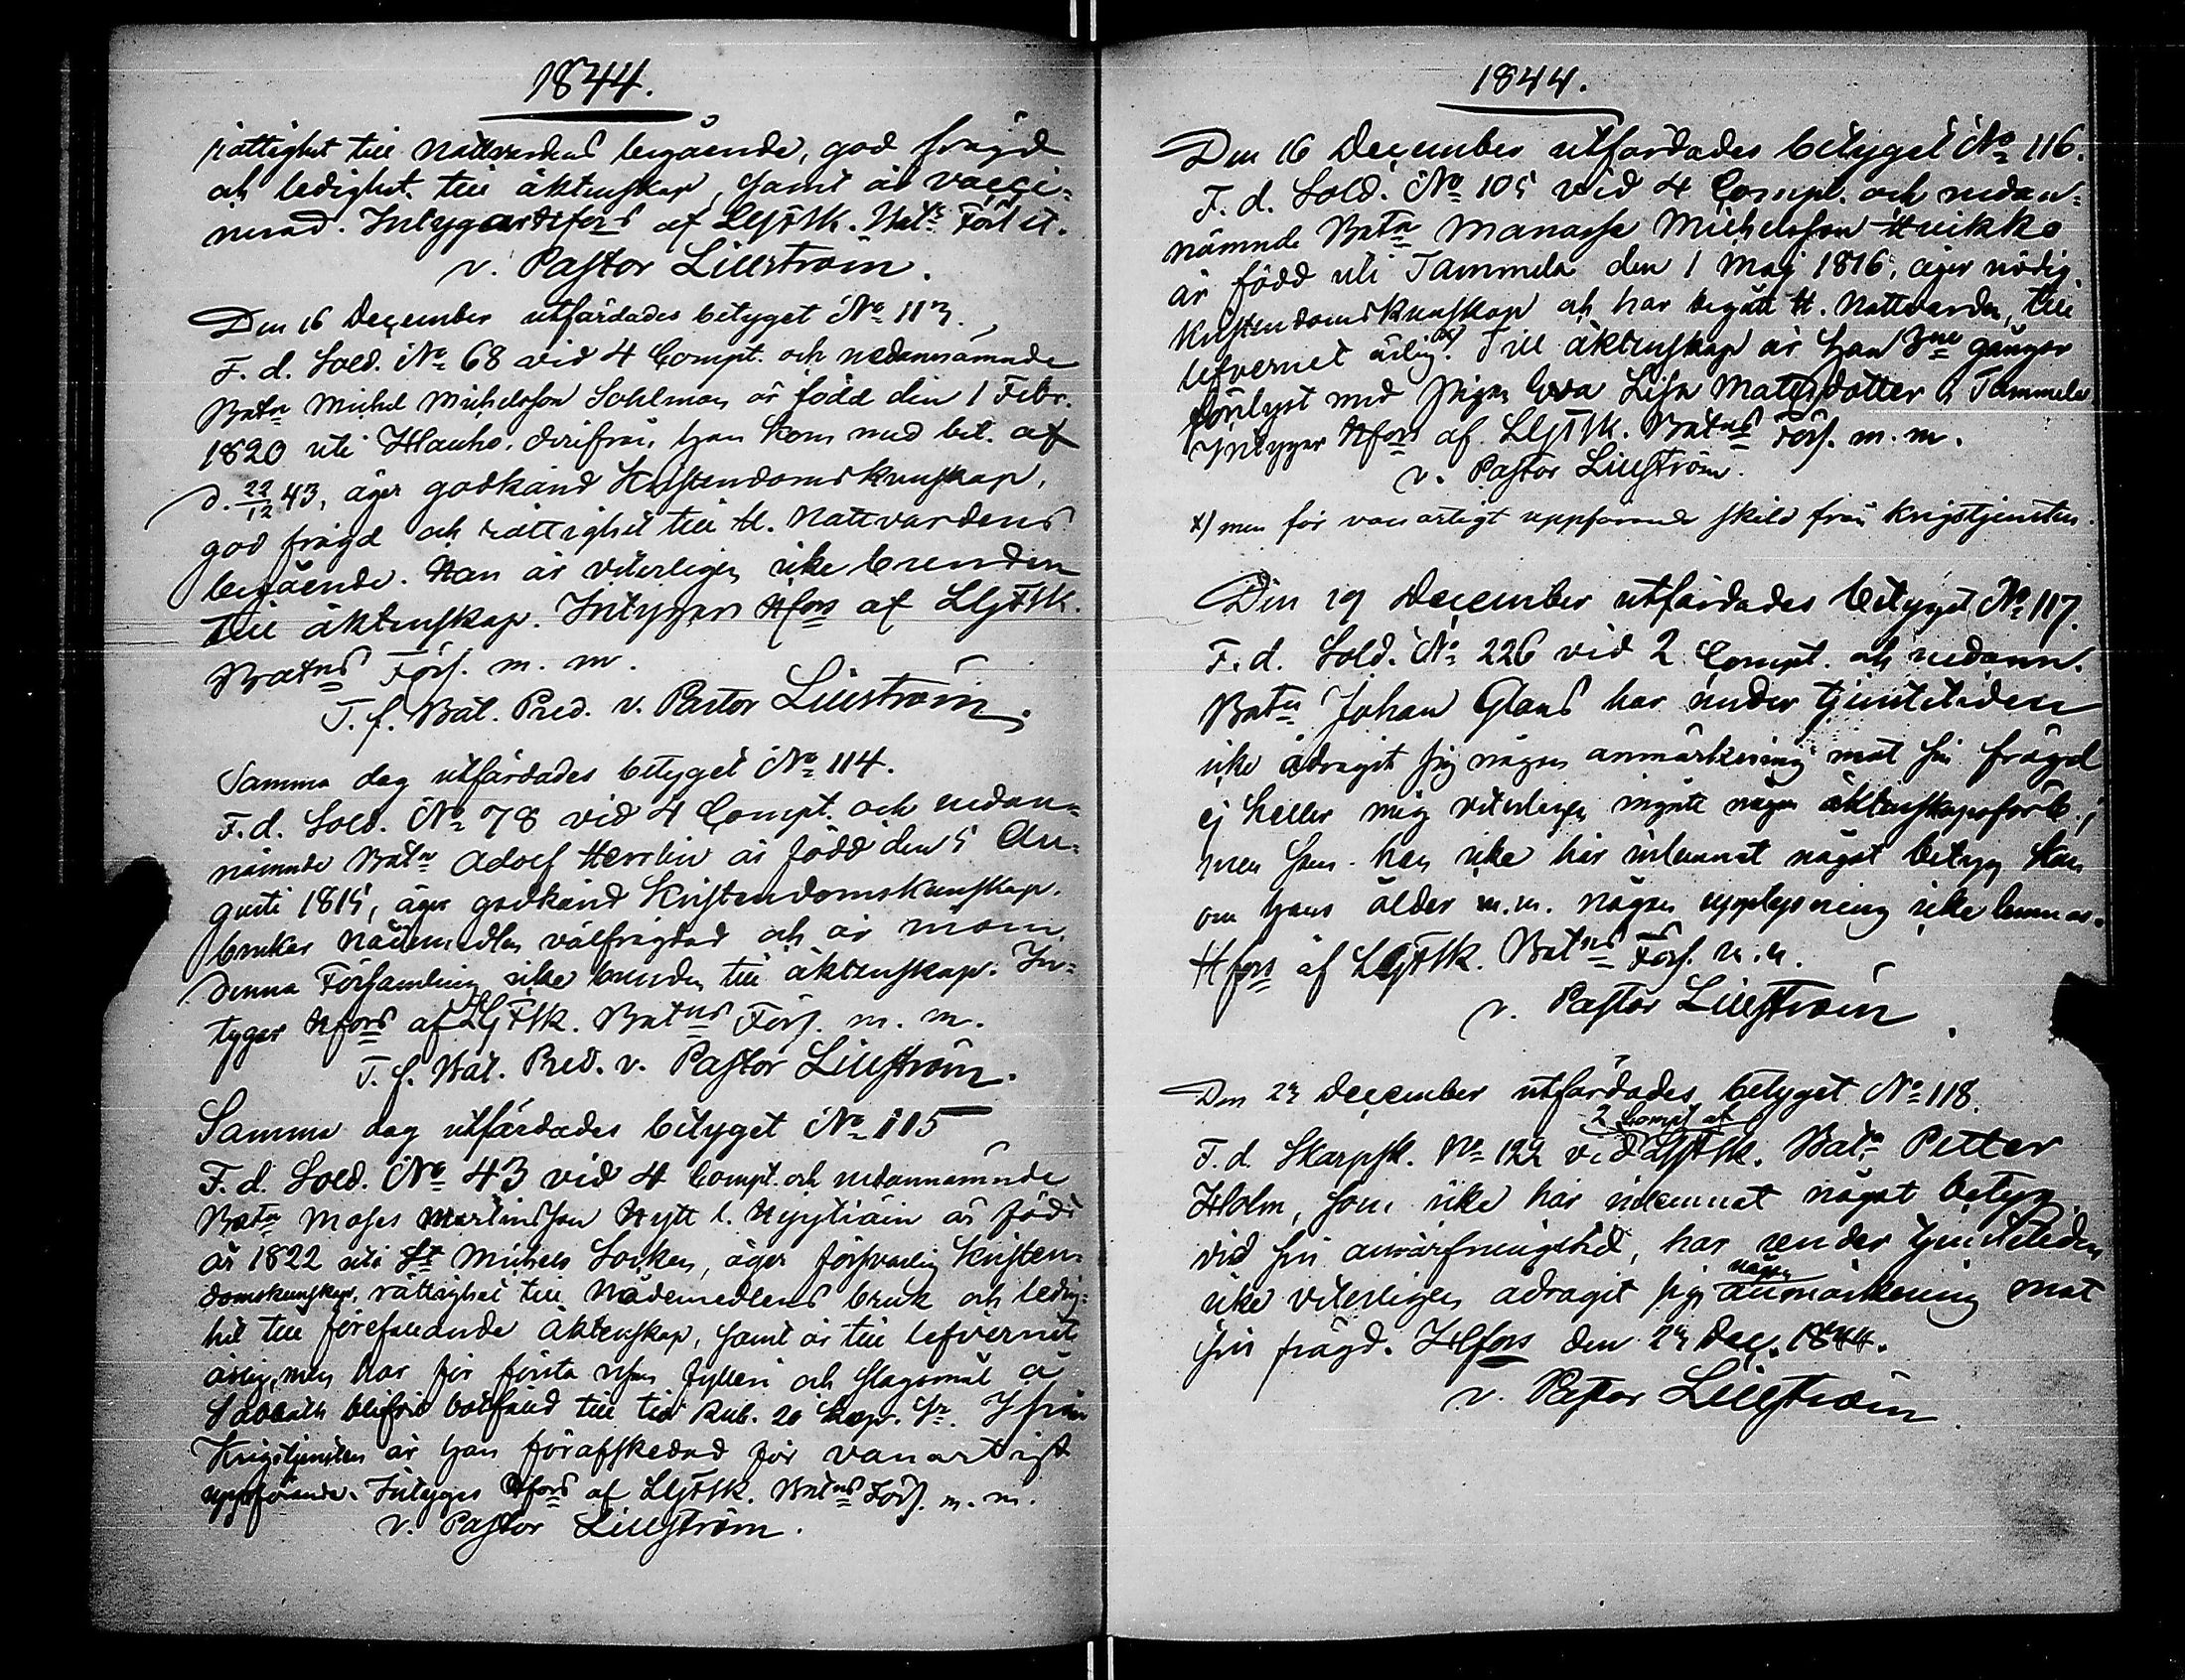 1844.
rättighet till nattvardens begående, god frägd
och ledighet till äktenskap, samt är vacci-
nerad. Intygar Hfors af LGFSk. Batns Förs. et.
v. Pastor Lillström.
Den 16 December utfärdades betyget No 113.
F. d. Sold. No 68 vid 4 Comp. och nedannämnde
Batn Michel Michelsson Sohlman är född den 1 Febr.
1820 uti Hauho, derifrån han kom med bet. af
d. 22/12 43, äger godkänd Kristendomskunskap,
god frägd och rättighet till H. Nattvardens
begående. Han är veterligen icke bunden
till äktenskap. Intygar Hfors af LGFSk.
Batns Förs. m. m.
T. f. Bat. Pred. v. Pastor Lillström.
Samma dag utfärdades betyget No 114.
F. d. Sold. No 78 vid 4 Comp. och nedan-
nämnde Batn Adolf Herrlin är född den 5 Au-
gusti 1815, äger godkänd Kristendomskunskap,
brukar nådemedlen välfrägdad och är inom
denna Församling icke bunden till äktenskap. In-
tygar Hfors af LGFSk. Batns Förs. m. m.
T. f. Bat. Pred. v. Pastor Lillström.
Samma dag utfärdades betyget No 115
F. d. Sold. No 43 vid 4 Comp. och nedannämnde
Batn Moses Martinsson Hytt l. är född
år 1822 uti St Michels Socken, äger försvarlig Kristen-
domskunskap, rättighet till Nådemedlens bruk och ledig-
het till förefallande äktenskap, samt är till lefvernet
ärlig, men har för första resan fylleri och slagsmål å
Sabbath blifvit botfäld till tio Rub. 20 Kop. Sr. Ifrån
Krigstjensten är han förafskedad för vanartigt
uppförande. Intygas Hfors af LGFSk. Batns Förs. m. m.
v. Pastor Lillström.
1844.
Den 16 December utfärdades betyget No 116.
F. d. Sold. No 105 vid 4 Comp. och nedan-
nämnde Batn Manasse Michelsson Huikko
är född uti Tammela den 1 Maj 1816, äger nödig
Kristendomskunskap och har begått H. Nattvarden, till
lefvernet ärlig x). Till äktenskap är han 3ne gånger
förelyst med Pigan Eva Lisa Mattsdotter i Tammela
Intygar Hfors af LGFSk. Batns Förs. m. m.
v. Pastor Lillström.
x) men för vanartigt uppförande skild från Krigstjensten.
Den 19 December utfärdades betyget No 117.
F. d. Sold. No 226 vid 2 Comp. och nedann.
Batn Johan Glans har under tjenstetiden
icke ådragit sig någon anmärkning mot sin frägd
ej heller mig veterligen ingått något äktenskapsförb.;
men som han icke här inlemnat något betyg kan
om hans ålder m.m. någon upplysning icke lemnas.
Hfors af LGFSk. Batns Förs. m. m.
v. Pastor Lillström
Den 23 December utfärdades betyget No 118.
2 Comp. af
F. d. Skarpsk. No 122 vid LGFSk. Batn Petter
Holm, som icke här inlemnat något betyg
vid sin anvärfningstid, har under tjenstetiden
någon
icke veterligen ådragit sig anmärkning mot
sin frägd. Hfors den 23 Dec. 1844.
v. Pastor Lillström